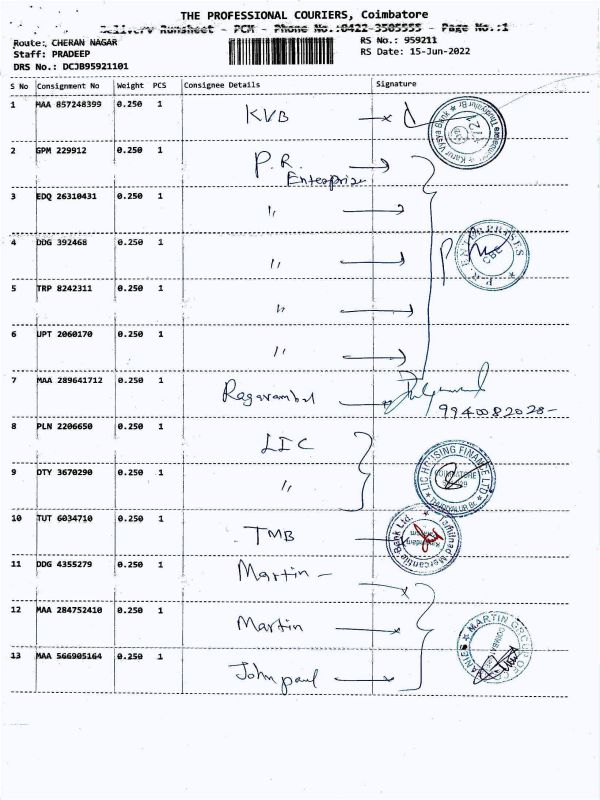 THE PROFESSIONAL COURIERS, Coimbatore
Delivery Runsheet - PCM - Phone No.:0422-3505555 - Page No.:1
Route: CHERAN NAGAR
RS No.: 959211
Staff: PRADEEP
RS Date: 15-Jun-2022
DRS No.: DCJB95921101
S No Consignment No Weight PCS Consignee Details Signature
1 MAA 857248399 0.250 1 KVB
2 GPM 229912 0.250 1 P.R. Enterprise
3 EDQ 26310431 0.250 1 "
4 DDG 392468 0.250 1 "
P.R. ENTERPRISES
CBE
5 TRP 8242311 0.250 1 "
6 UPT 2060170 0.250 1 "
7 MAA 289641712 0.250 1 Ragavambal
9940082028-
8 PLN 2206650 0.250 1 LIC
LIC HOUSING FINANCE LTD
9 DTY 3670290 0.250 1 "
10 TUT 6034710 0.250 1 TMB
Tamilnad Mercantile Bank Ltd.
11 DDG 4355279 0.250 1 Martin -
12 MAA 284752410 0.250 1 Martin
MARTIN GROUP OF
13 MAA 566905164 0.250 1 John paul